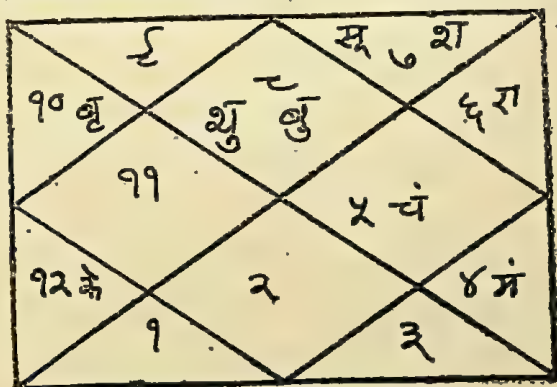 ९
सू ७ श
१० बृ
८
शु बु
६ रा
११
५ चं
१२ के
२
४ मं
१
३